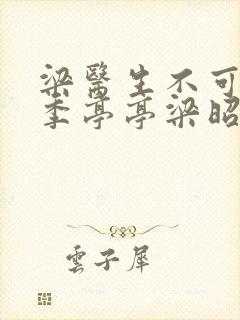 梁醫生不可
季亭亭梁昭
雲子犀